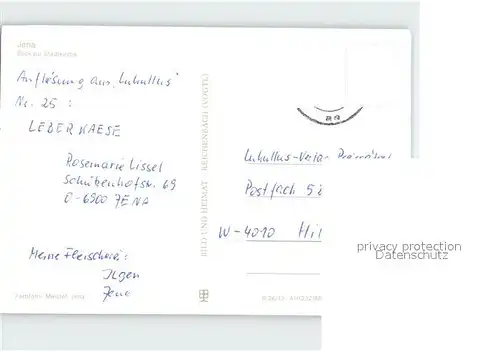 Jena
Blick zur Stadtkirche
Auflösung aus „Lukullus"
Nr. 25 :
LEBERKAESE
Rosemarie Lissel
Schützenhofstr. 69
O-6900 JENA
Meine Fleischerei:
Ilgen
Jena
BILD UND HEIMAT REICHENBACH (VOGTL)
Lukullus-Verlag Preisrätsel
Postfach 5
W-4010 Hil
privacy protection
Datenschutz